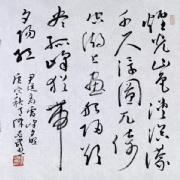 煙光山色淡溟濛
千尺浮图兀倚
空湖上画船归欲
尽孤峰犹带
夕阳红
尹廷高雷峰夕照
庚寅秋